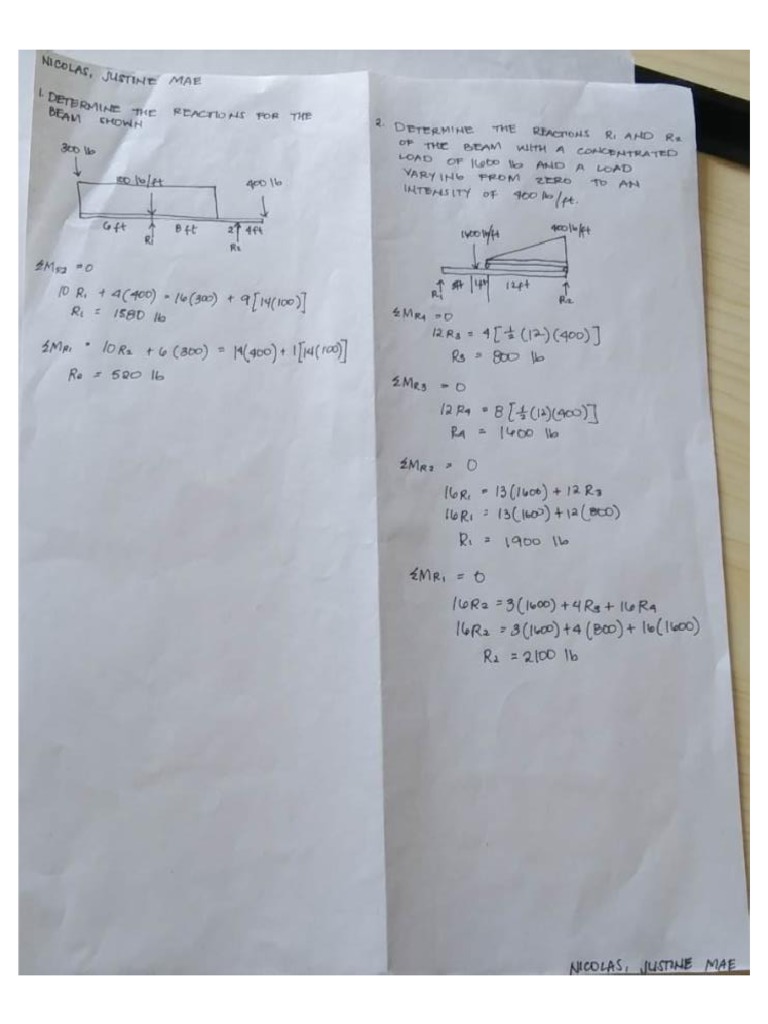 NICOLAS, JUSTINE MAE
1. DETERMINE THE REACTIONS FOR THE
BEAM SHOWN
300 lb
100 lb/ft
400 lb
6ft
R1
8ft
2'
4ft
R2
ΣMR2 = 0
10 R1 + 4(400) = 16(300) + 9[14(100)]
R1 = 1580 lb
ΣMR1 = 10R2 + 6(300) = 14(400) + 1[14(100)]
R2 = 520 lb
2. DETERMINE THE REACTIONS R1 AND R2
OF THE BEAM WITH A CONCENTRATED
LOAD OF 1600 lb AND A LOAD
VARYING FROM ZERO TO AN
INTENSITY OF 400 lb/ft.
400 lb/ft
R1
3ft
1ft
12ft
R2
ΣMR4 = 0
12R3 = 4[½(12)(400)]
R3 = 800 lb
ΣMR3 = 0
12R4 = 8[½(12)(400)]
R4 = 1600 lb
ΣMR2 = 0
16R1 = 13(1600) + 12R3
16R1 = 13(1600) + 12(800)
R1 = 1900 lb
ΣMR1 = 0
16R2 = 3(1600) + 4R3 + 16R4
16R2 = 3(1600) + 4(800) + 16(1600)
R2 = 2100 lb
NICOLAS, JUSTINE MAE